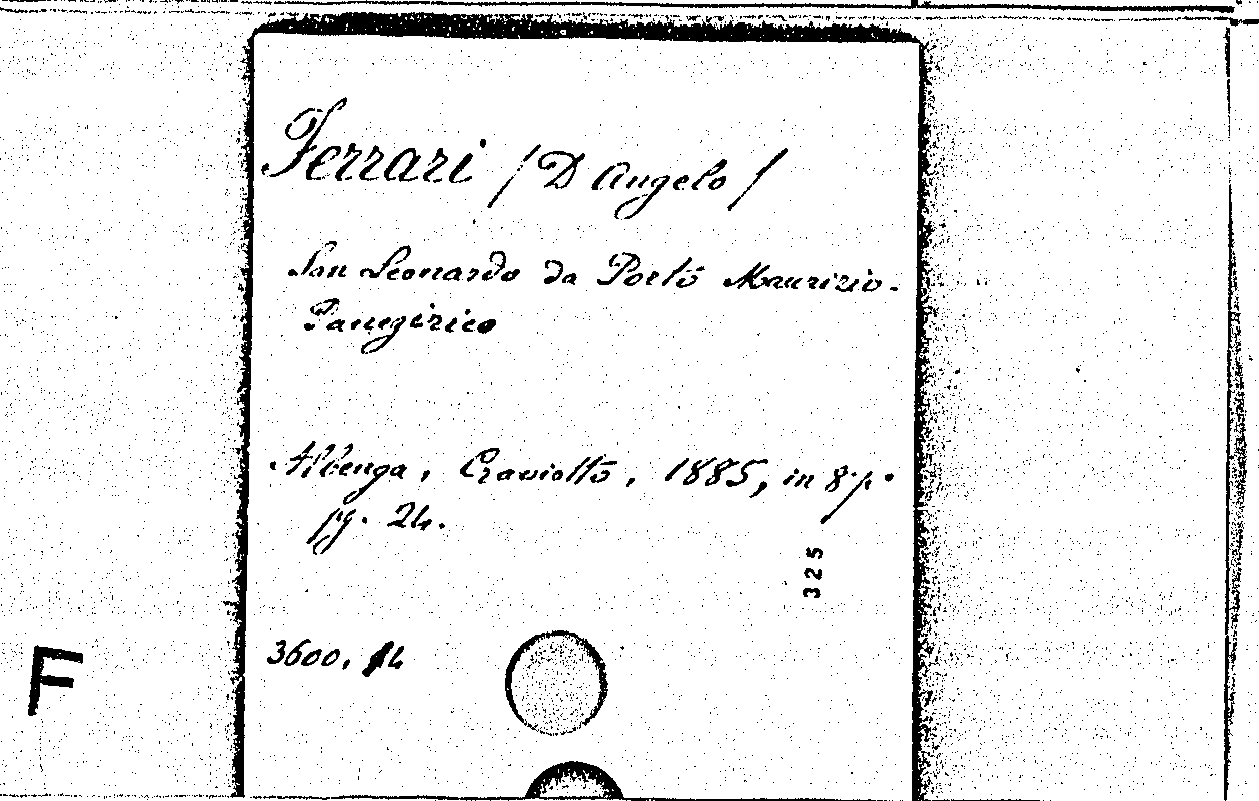 Ferrari / D Angelo /
San Leonardo da Porto Maurizio.
Panegirico
Albenga, Craviotto, 1885, in 8° p°
pg. 24.
325
3600, 14
F